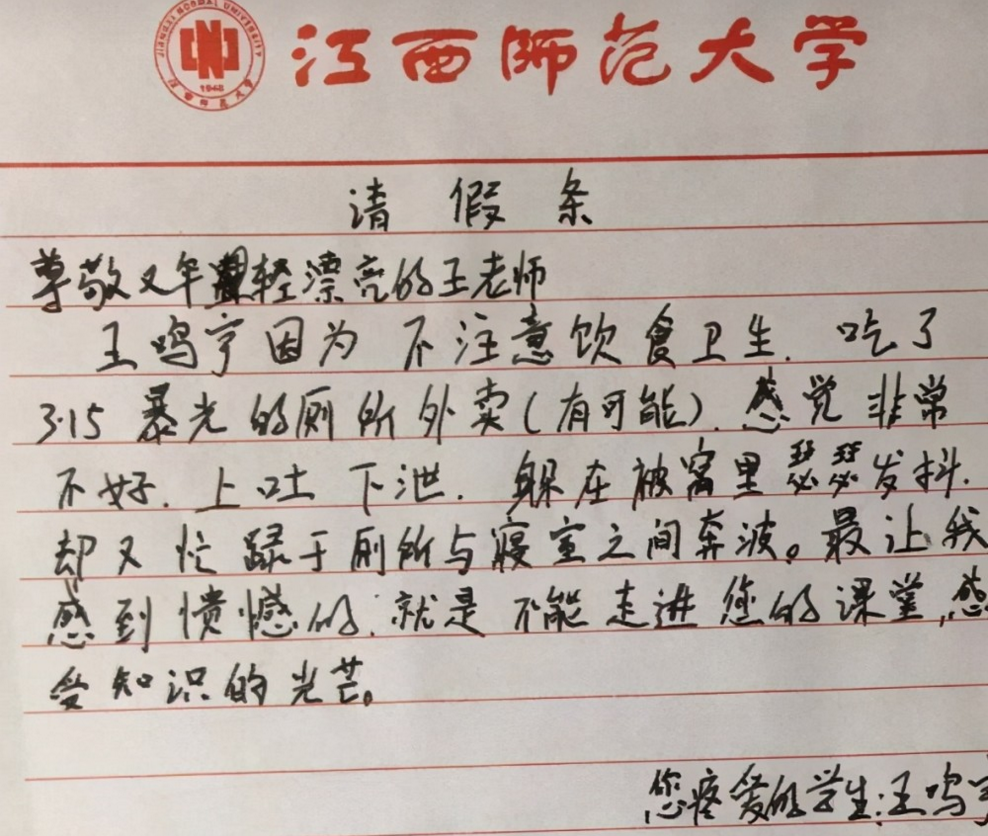 JIANGXI NORMAL UNIVERSITY
1940
江西师范大学
江西师范大学
请假条
尊敬又年轻漂亮的王老师
王鸣宇因为不注意饮食卫生.吃了
3.15暴光的厕所外卖(有可能).感觉非常
不好.上吐下泄.躲在被窝里瑟瑟发抖.
却又忙碌于厕所与寝室之间奔波。最让我
感到愤憾的.就是不能走进您的课堂,感
受知识的光芒。
您疼爱的学生:王鸣宇